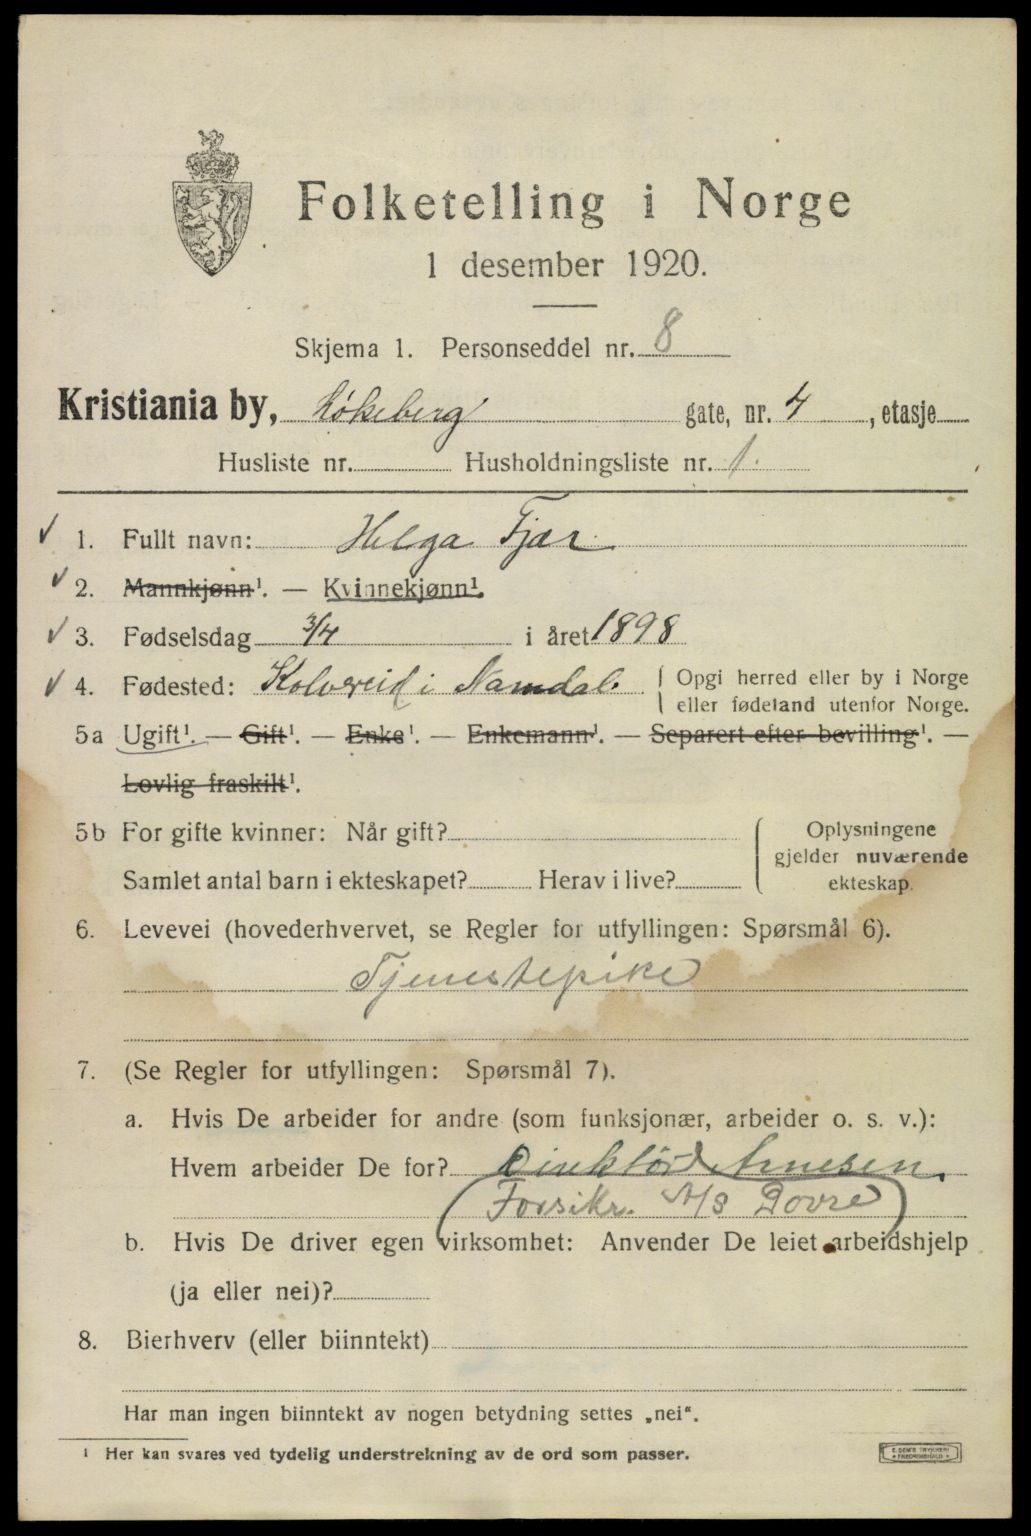 Folketelling i Norge
1 desember 1920.
Skjema 1. Personseddel nr. 8
Kristiania by, Løkeberg gate, nr. 4, etasje
Husliste nr. Husholdningsliste nr. 1.
1. Fullt navn: Helga Fjær
2. Mannkjønn¹. — Kvinnekjønn¹.
3. Fødselsdag 3/4 i året 1898
4. Fødested: Kolvereid i Namdal. Opgi herred eller by i Norge
eller fødeland utenfor Norge.
5a Ugift¹. — Gift¹. — Enke¹. — Enkemann¹. — Separert efter bevilling¹. —
Lovlig fraskilt¹.
5b For gifte kvinner: Når gift?
Samlet antal barn i ekteskapet? Herav i live?
Oplysningene
gjelder nuværende
ekteskap.
6. Levevei (hovederhvervet, se Regler for utfyllingen: Spørsmål 6).
Tjenestepike
7. (Se Regler for utfyllingen: Spørsmål 7).
a. Hvis De arbeider for andre (som funksjonær, arbeider o. s. v.):
Hvem arbeider De for? Direktør Arnesen.
Forsikr. A/S Dovre
b. Hvis De driver egen virksomhet: Anvender De leiet arbeidshjelp
(ja eller nei)?
8. Bierhverv (eller biinntekt)
Har man ingen biinntekt av nogen betydning settes „nei“.
¹ Her kan svares ved tydelig understrekning av de ord som passer.